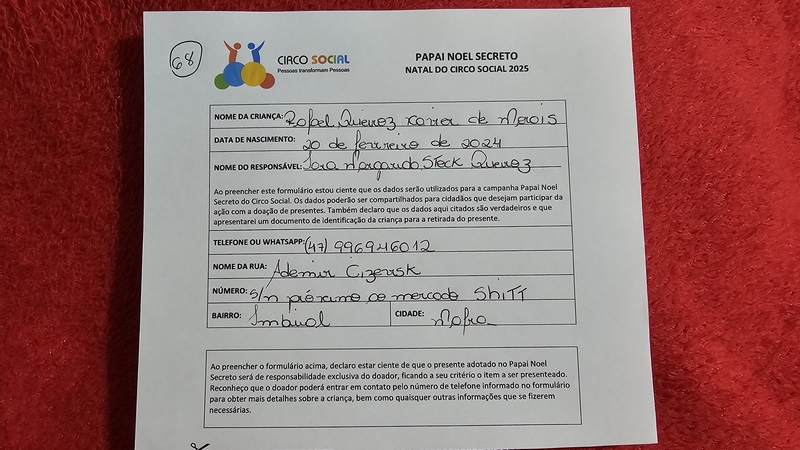 68
CIRCO SOCIAL
Pessoas transformam Pessoas
PAPAI NOEL SECRETO
NATAL DO CIRCO SOCIAL 2025
NOME DA CRIANÇA: Rafael Queiroz Xavier de Morais
DATA DE NASCIMENTO: 20 de fevereiro de 2024
NOME DO RESPONSÁVEL: Sara Margarida Steck Queiroz
Ao preencher este formulário estou ciente que os dados serão utilizados para a campanha Papai Noel
Secreto do Circo Social. Os dados poderão ser compartilhados para cidadãos que desejam participar da
ação com a doação de presentes. Também declaro que os dados aqui citados são verdadeiros e que
apresentarei um documento de identificação da criança para a retirada do presente.
TELEFONE OU WHATSAPP: (47) 996946012
NOME DA RUA: Ademir
NÚMERO: S/n próximo ao mercado ShiTT
BAIRRO: Imbuial CIDADE: Mafra
Ao preencher o formulário acima, declaro estar ciente de que o presente adotado no Papai Noel
Secreto será de responsabilidade exclusiva do doador, ficando a seu critério o item a ser presenteado.
Reconheço que o doador poderá entrar em contato pelo número de telefone informado no formulário
para obter mais detalhes sobre a criança, bem como quaisquer outras informações que se fizerem
necessárias.